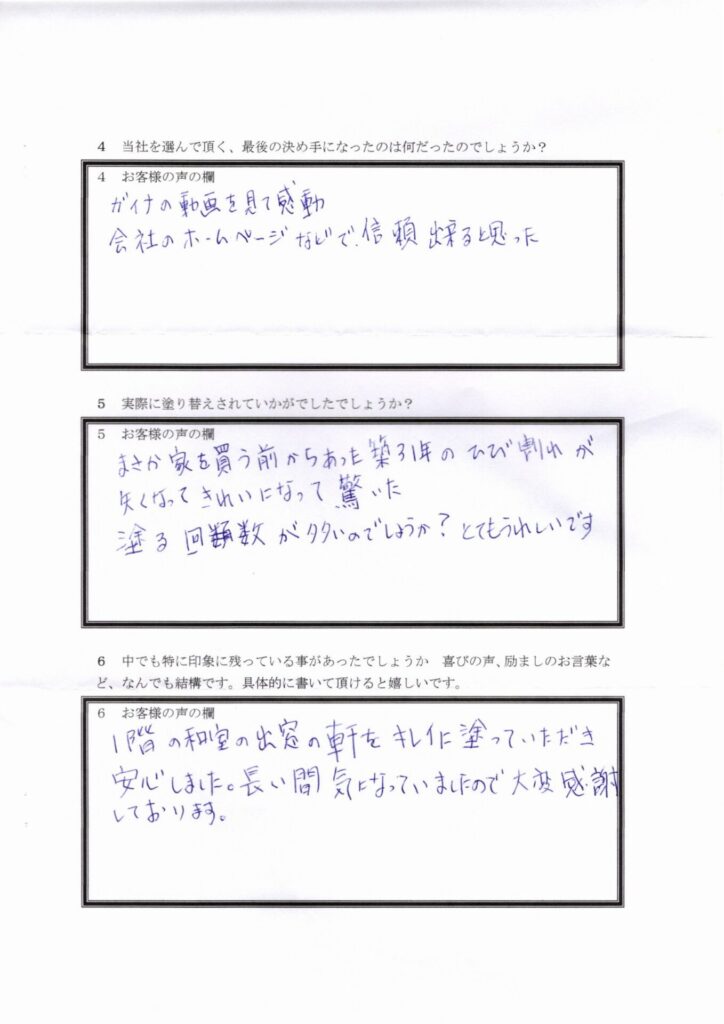 4 当社を選んで頂く、最後の決め手になったのは何だったのでしょうか？
4 お客様の声の欄
ガイナの動画を見て感動
会社のホームページなどで、信頼出来ると思った
5 実際に塗り替えされていかがでしたでしょうか？
5 お客様の声の欄
まさか家を買う前からあった築31年のひび割れが
失くなってきれいになって驚いた
塗る回数が多いのでしょうか？とてもうれしいです
6 中でも特に印象に残っている事があったでしょうか 喜びの声、励ましのお言葉な
ど、なんでも結構です。具体的に書いて頂けると嬉しいです。
6 お客様の声の欄
1階の和室の出窓の軒をキレイに塗っていただき
安心しました。長い間気になっていましたので大変感謝
しております。